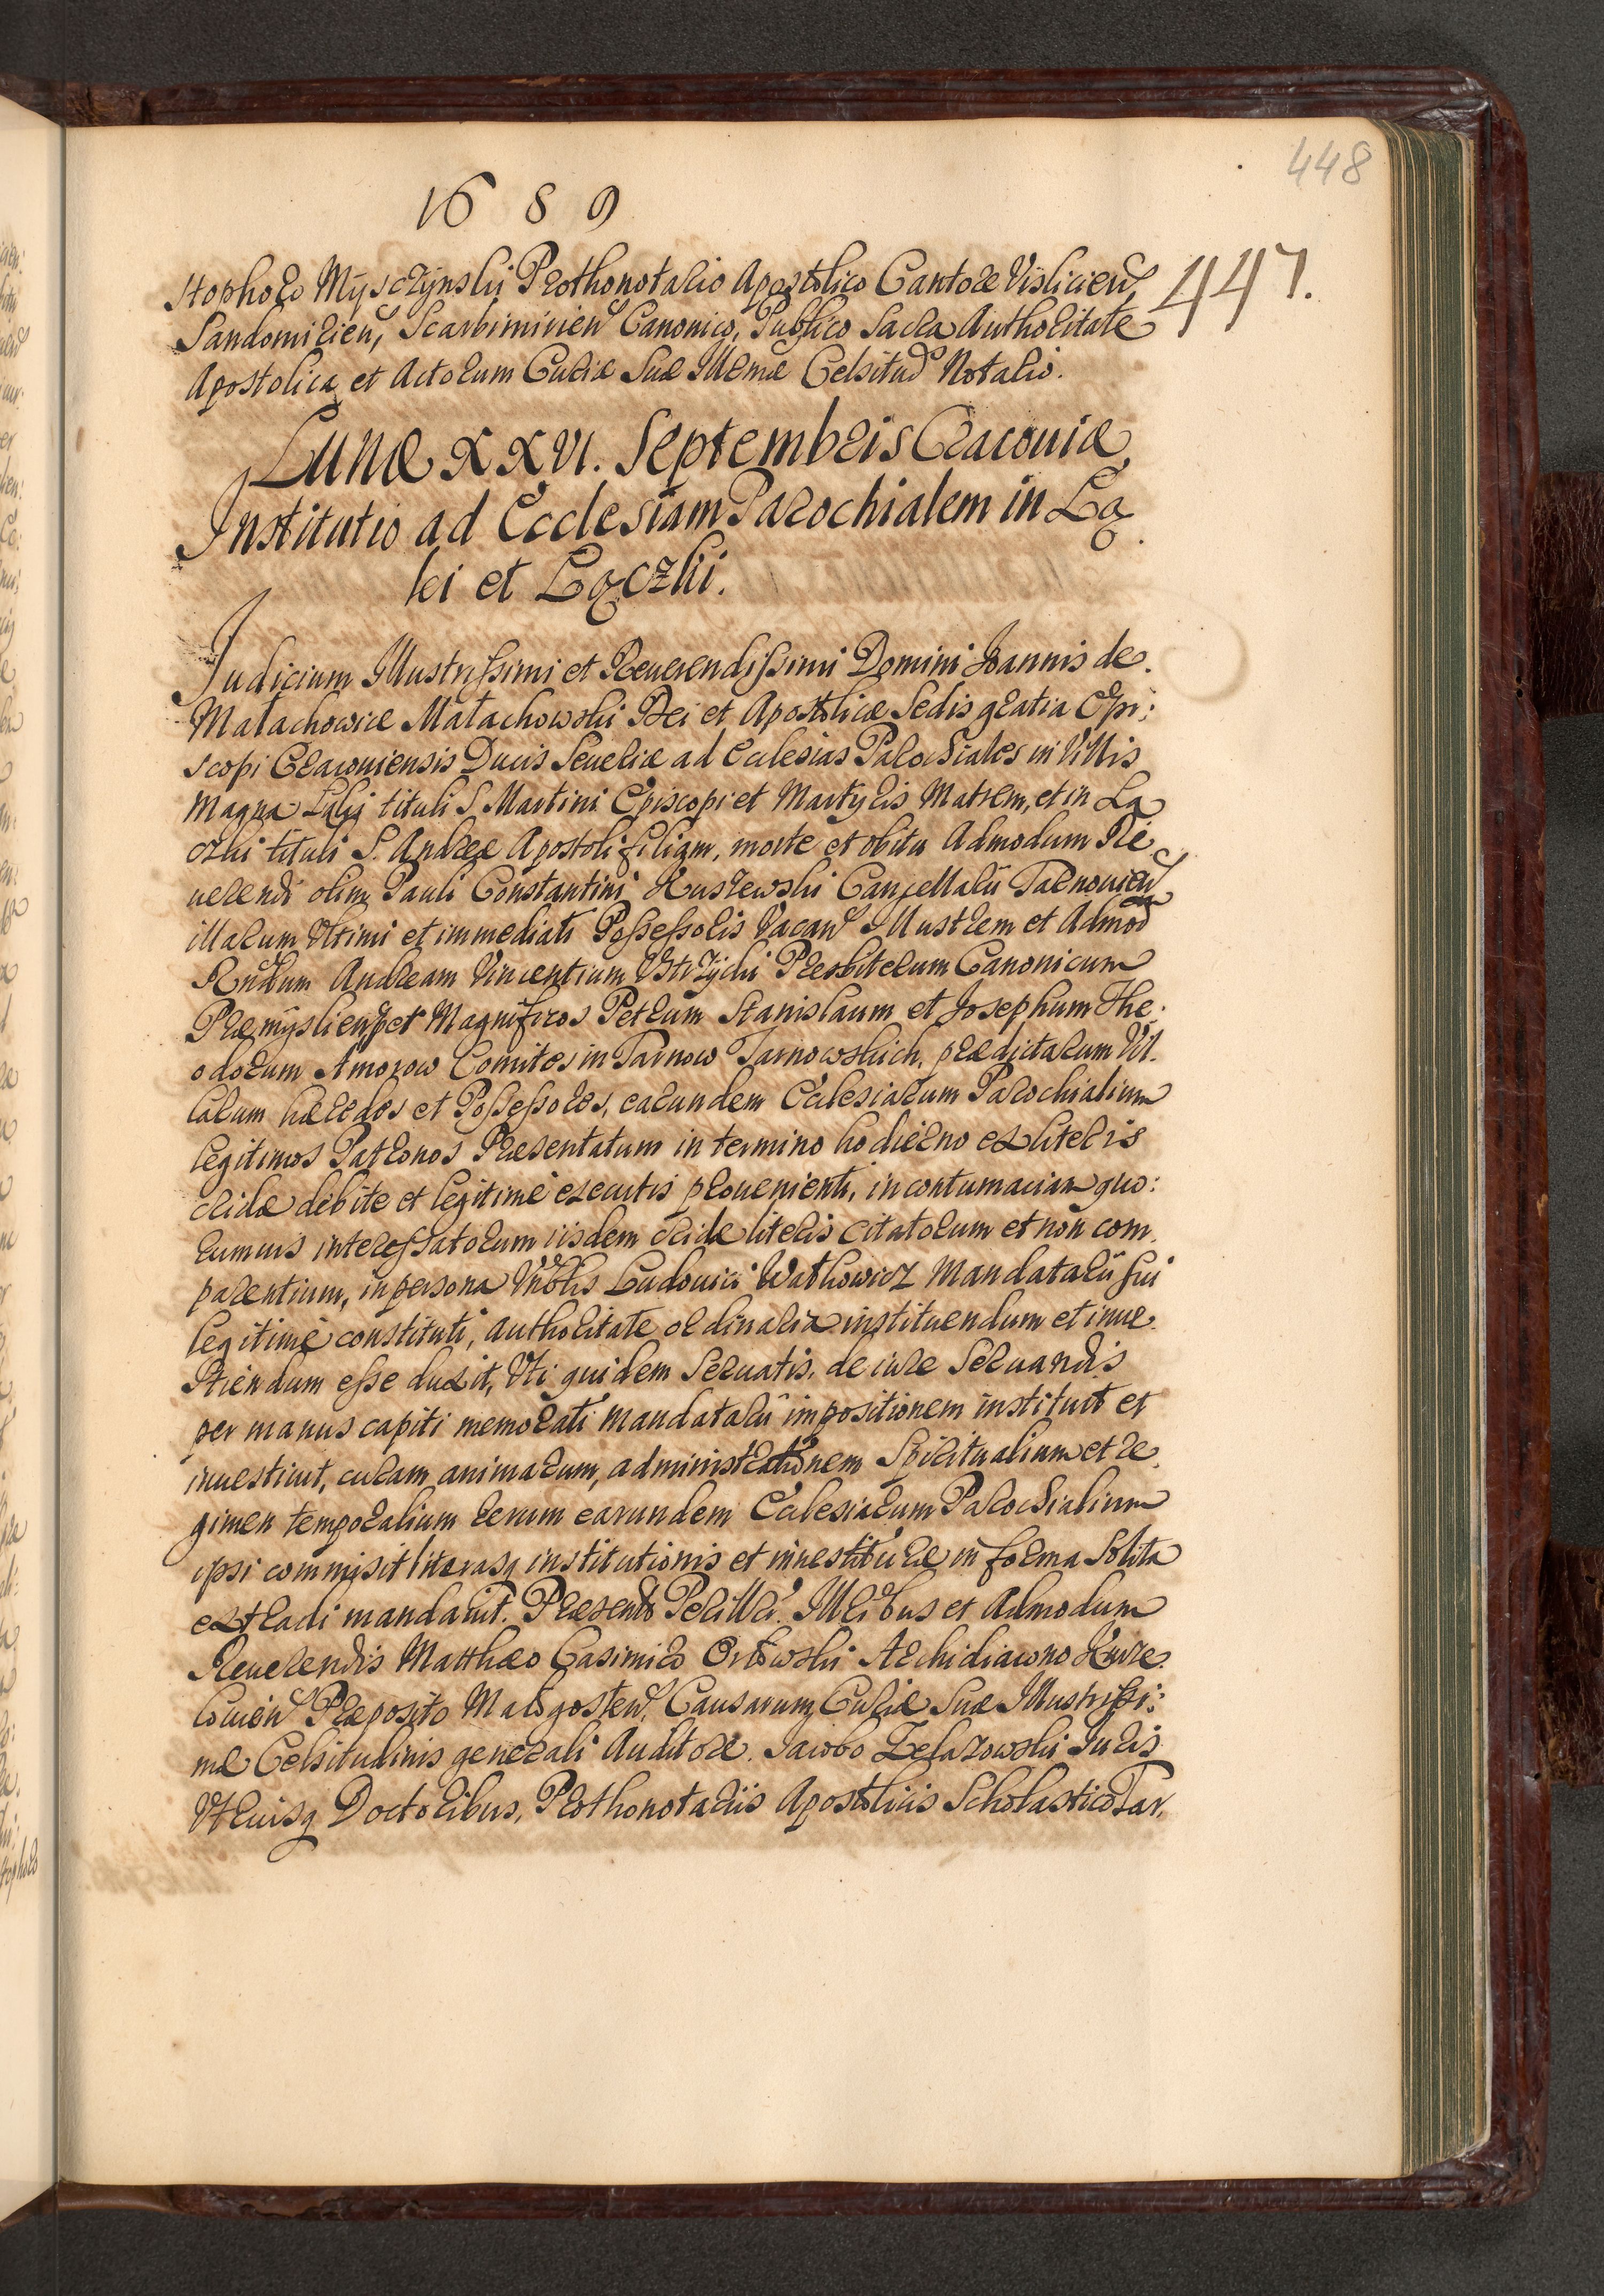 448
1689
447.
stophoro Mysczÿnski Prothonotario Apostolico Cantore Vislicien,
Sandomirien, Scarbimirien Canonico, Publico Sacra Authoritate
Apostolica et Actorum Curiæ Suæ Illmæ Celsitud Notario.
Lunæ XXVI. Septembris Cracouiæ
Institutio ad Ecclesiam Parochialem in Łą
ki et Łączki.
Judicium Illustrissimi et Reuerendissimi Domini Joannis de
Małachowice Małachowski Dei et Apostolicæ Sedis gratia Epi:
scopi Cracouiensis Ducis Seueriæ ad Ecclesias Parochiales in Villis
Magna Łąki tituli S. Martini Episcopi et Martyris Matrem, et in Łą
czki tituli S. Andreæ Apostoli filiam, morte et obitu Admodum Re
uerendi olim Pauli Constantini Kuszewski Cancellarii Tarnouien
illarum Vltimi et immediati Possessoris Vacan Illustrem et Admod
Rndum Andream Vincentium Vstrzÿcki Presbiterum Canonicum
Præmÿslien, per Magnificos Petrum Stanislaum et Josephum The:
odorum Amorow Comites in Tarnow Tarnowskich, prædictarum Vil
larum hæredes et Possessores, earundem Ecclesiarum Parochialium
legitimos Patronos Præsentatum in termino hodierno ex literis
cridæ debite et legitimè executis prouenienti, in contumaciam quo:
rumuis interessatorum iisdem cridæ literis citatorum et non com
parentium, in persona Vnblis Ludouici Watkowicz Mandatarii sui
legitimè constituti, authoritate ordinaria instituendum et inue
stiendum esse duxit, Vti quidem Seruatis, de iure Seruandis
per manus capiti memorati Mandatarii impositionem instituit et
inuestiuit, curam animarum, administrationem Spiritualium et re
gimen temporalium rerum earundem Ecclesiarum Parochialium
ipsi commisit literasq institutionis et inuestituræ in forma Solita
extradi mandauit. Præsent Perilld. Illribus et Admodum
Reuerendis Matthæo Casimiro Orłowski Archidiacono Kurze
louien Præposito Małogosten, Causarum Curiæ Suæ Illustrissi:
mæ Celsitudinis generali Auditore. Jacobo Zelazowski Juris
Vtriusq Doctoribus, Prothonotariis Apostolicis Scholastico Tar.